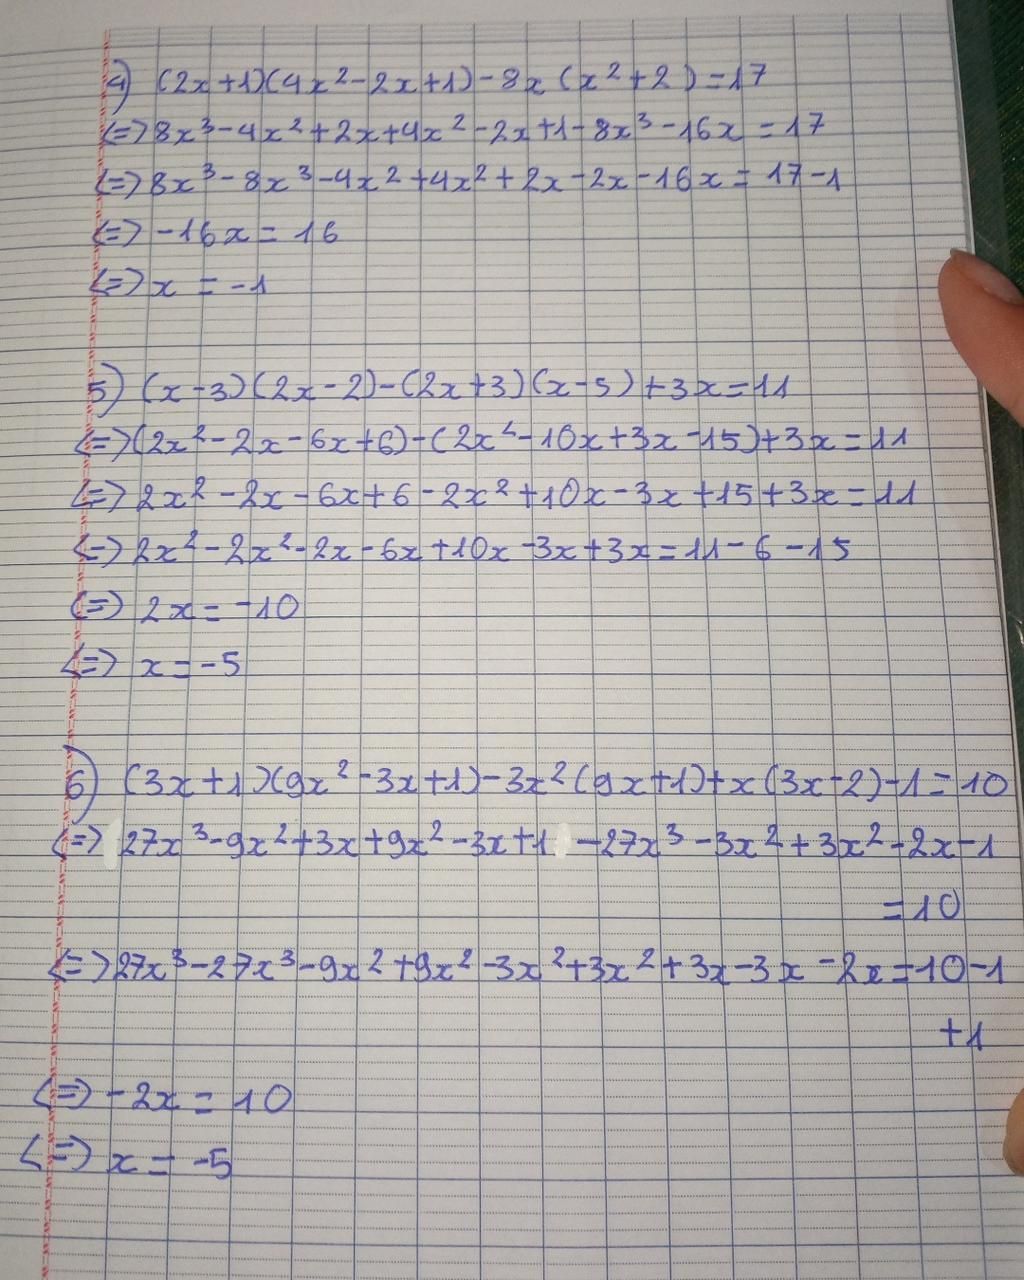 4) (2x+1)(4x²-2x+1)-8x(x²+2)=17
<=>8x³-4x²+2x+4x²-2x+1-8x³-16x=17
<=>8x³-8x³-4x²+4x²+2x-2x-16x=17-1
<=>-16x=16
<=>x=-1
5) (x-3)(2x-2)-(2x+3)(x-5)+3x=11
<=>(2x²-2x-6x+6)-(2x²-10x+3x-15)+3x=11
<=>2x²-2x-6x+6-2x²+10x-3x+15+3x=11
<=>2x²-2x²-2x-6x+10x-3x+3x=11-6-15
<=>2x=-10
<=>x=-5
6) (3x+1)(9x²-3x+1)-3x²(9x+1)+x(3x-2)-1=10
<=>27x³-9x²+3x+9x²-3x+1-27x³-3x²+3x²-2x-1
=10
<=>27x³-27x³-9x²+9x²-3x²+3x²+3x-3x-2x=10-1
+1
<=>-2x=10
<=>x=-5